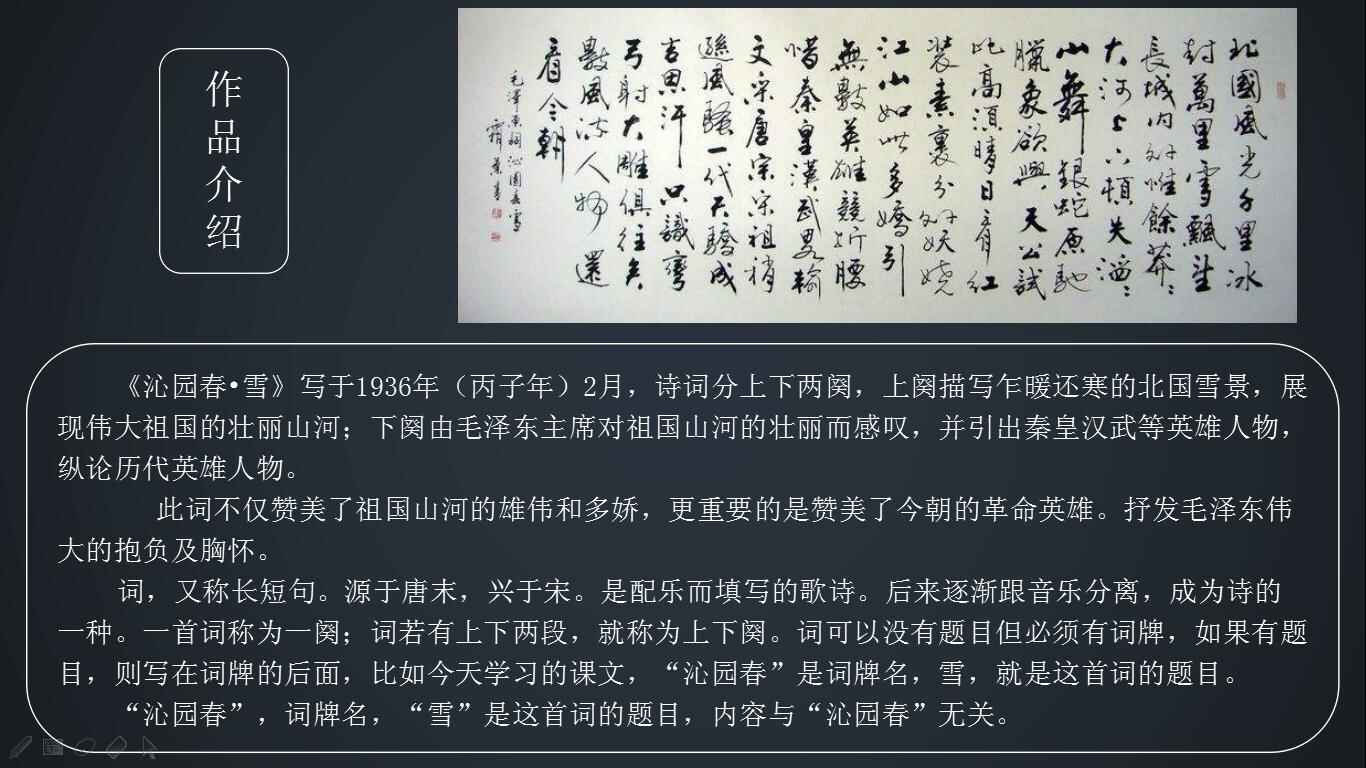 作品介绍
北國風光千里冰
封萬里雪飄望
長城内外惟餘莽々
大河上下頓失滔々
山舞銀蛇原馳
臘象欲與天公試
比高須晴日看紅
裝素裹分外妖嬈
江山如此多嬌引
無數英雄競折腰
惜秦皇漢武畧輸
文采唐宗宋祖稍
遜風騷一代天驕成
吉思汗只識彎
弓射大雕俱往矣
數風流人物還
看今朝
毛澤東詞沁園春雪
《沁园春•雪》写于1936年（丙子年）2月，诗词分上下两阕，上阕描写乍暖还寒的北国雪景，展
现伟大祖国的壮丽山河；下阕由毛泽东主席对祖国山河的壮丽而感叹，并引出秦皇汉武等英雄人物，
纵论历代英雄人物。
此词不仅赞美了祖国山河的雄伟和多娇，更重要的是赞美了今朝的革命英雄。抒发毛泽东伟
大的抱负及胸怀。
词，又称长短句。源于唐末，兴于宋。是配乐而填写的歌诗。后来逐渐跟音乐分离，成为诗的
一种。一首词称为一阕；词若有上下两段，就称为上下阕。词可以没有题目但必须有词牌，如果有题
目，则写在词牌的后面，比如今天学习的课文，“沁园春”是词牌名，雪，就是这首词的题目。
“沁园春”，词牌名，“雪”是这首词的题目，内容与“沁园春”无关。